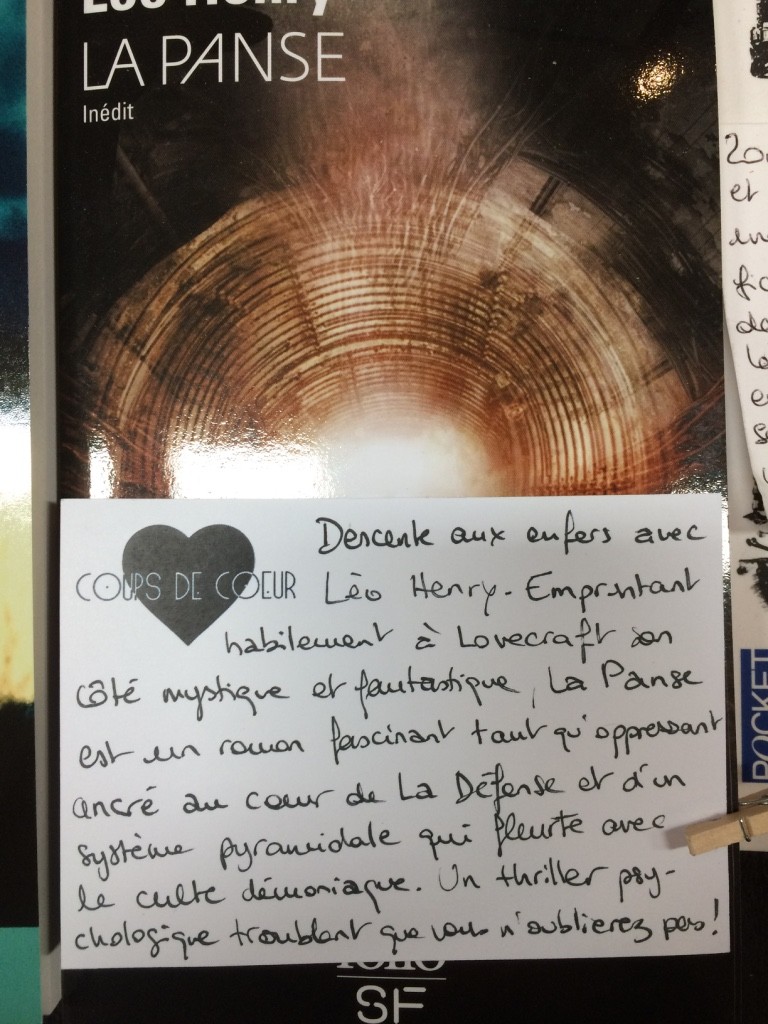 Léo Henry
LA PANSE
Inédit
COUPS DE COEUR
Descente aux enfers avec
Léo Henry. Empruntant
habilement à Lovecraft son
côté mystique et fantastique, La Panse
est un roman fascinant tant qu'oppressant
ancré au coeur de La Défense et d'un
système pyramidale qui fleurte avec
le culte démoniaque. Un thriller psy-
chologique troublant que vous n'oublierez pas!
folio
SF
et
POCKET